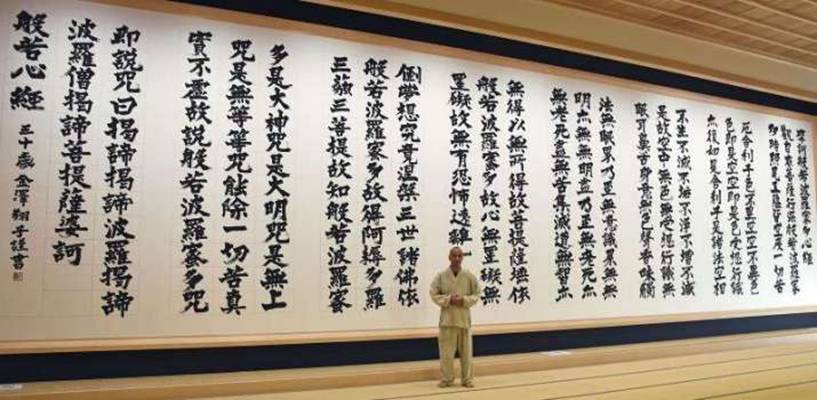 摩訶般若波羅蜜多心経
観自在菩薩行深般若波羅蜜
多時照見五蘊皆空度一切苦
厄舎利子色不異空空不異色
色即是空空即是色受想行識
亦復如是舎利子是諸法空相
不生不滅不垢不浄不増不減
是故空中無色無受想行識無
眼耳鼻舌身意無色聲香味觸
法無眼界乃至無意識界無無
明亦無無明盡乃至無老死亦
無老死盡無苦集滅道無智亦
無得以無所得故菩提薩埵依
般若波羅蜜多故心無罣礙無
罣礙故無有恐怖遠離
倒夢想究竟涅槃三世諸佛依
般若波羅蜜多故得阿耨多羅
三藐三菩提故知般若波羅蜜
多是大神咒是大明咒是無上
咒是無等等咒能除一切苦真
實不虚故説般若波羅蜜多咒
即説咒曰掲諦掲諦波羅掲諦
波羅僧掲諦菩提薩婆訶
般若心経
三十歳 金澤翔子謹書